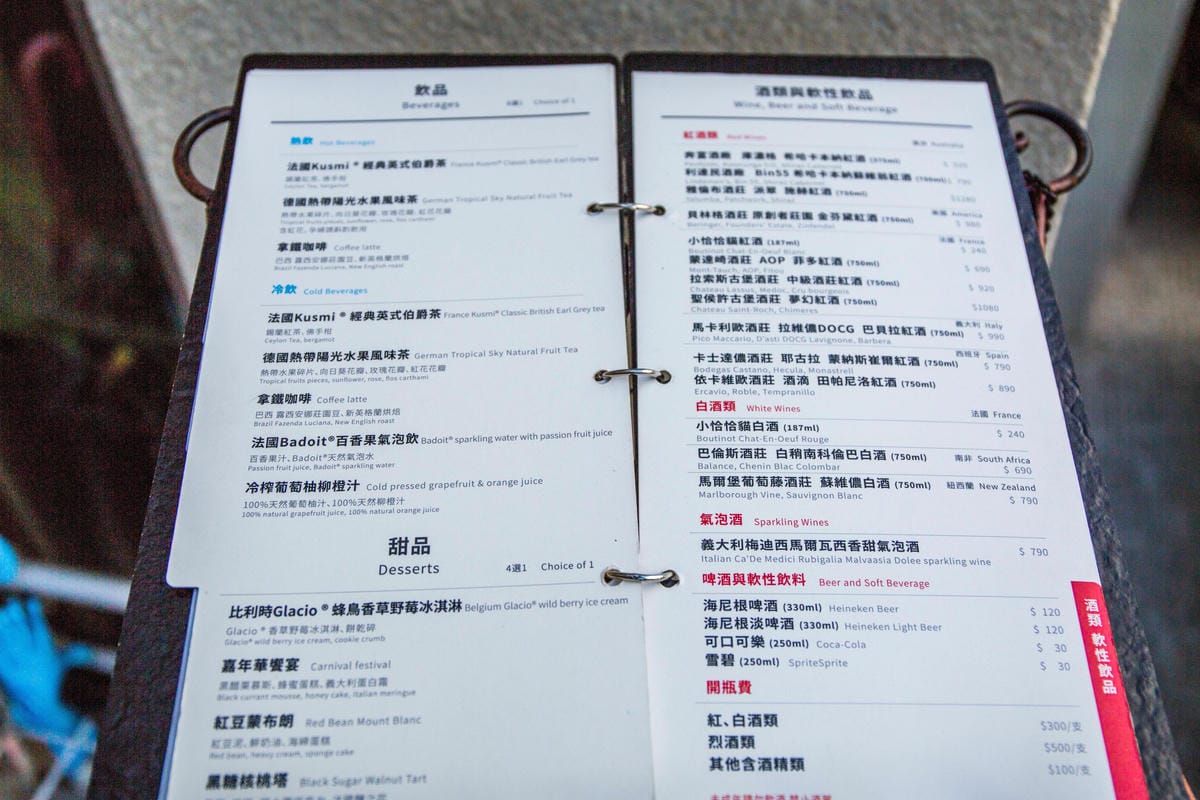 飲品
Beverages
4選1 Choice of 1
熱飲 Hot Beverages
法國Kusmi®經典英式伯爵茶 France Kusmi® Classic British Earl Grey tea
錫蘭紅茶、佛手柑
Ceylon Tea, bergamot
德國熱帶陽光水果風味茶 German Tropical Sky Natural Fruit Tea
熱帶水果碎片、向日葵花瓣、玫瑰花瓣、紅花花瓣
Tropical fruits pieces, sunflower, rose, flos carthami
含紅花，孕婦請斟酌飲用
拿鐵咖啡 Coffee latte
巴西 露西安娜莊園豆、新英格蘭烘焙
Brazil Fazenda Luciana, New English roast
冷飲 Cold Beverages
法國Kusmi®經典英式伯爵茶 France Kusmi® Classic British Earl Grey tea
錫蘭紅茶、佛手柑
Ceylon Tea, bergamot
德國熱帶陽光水果風味茶 German Tropical Sky Natural Fruit Tea
熱帶水果碎片、向日葵花瓣、玫瑰花瓣、紅花花瓣
Tropical fruits pieces, sunflower, rose, flos carthami
拿鐵咖啡 Coffee latte
巴西 露西安娜莊園豆、新英格蘭烘焙
Brazil Fazenda Luciana, New English roast
法國Badoit®百香果氣泡飲 Badoit® sparkling water with passion fruit juice
百香果汁、Badoit®天然氣泡水
Passion fruit juice, Badoit® sparkling water
冷榨葡萄柚柳橙汁 Cold pressed grapefruit & orange juice
100%天然葡萄柚汁、100%天然柳橙汁
100% natural grapefruit juice, 100% natural orange juice
甜品
Desserts
4選1 Choice of 1
比利時Glacio®蜂鳥香草野莓冰淇淋 Belgium Glacio® wild berry ice cream
Glacio®香草野莓冰淇淋、餅乾碎
Glacio® wild berry ice cream, cookie crumb
嘉年華饗宴 Carnival festival
黑醋栗慕斯、蜂蜜蛋糕、義大利蛋白霜
Black currant mousse, honey cake, Italian meringue
紅豆蒙布朗 Red Bean Mount Blanc
紅豆泥、鮮奶油、海綿蛋糕
Red bean, heavy cream, sponge cake
黑糖核桃塔 Black Sugar Walnut Tart
酒類與軟性飲品
Wine, Beer and Soft Beverage
紅酒類 Red Wines
澳洲 Australia
奔富酒廠 庫濃格 希哈卡本納紅酒 (375ml) $ 520
利達民酒廠 Bin55 希哈卡本納蘇維翁紅酒 (750ml) $ 790
雅倫布酒莊 派翠 施赫紅酒 (750ml) $1280
Yalumba, Patchwork, Shiraz
美國 America
貝林格酒莊 原創者莊園 金芬黛紅酒 (750ml) $ 980
Beringer, Founders' Estate, Zinfandel
法國 France
小恰恰貓紅酒 (187ml) $ 240
Boutinot Chat-En-Oeuf Blanc
蒙達崎酒莊 AOP 菲多紅酒 (750ml) $ 690
Mont-Tauch, AOP, Fitou
拉索斯古堡酒莊 中級酒莊紅酒 (750ml) $ 920
Chateau Lassus, Medoc, Cru bourgeois
聖侯許古堡酒莊 夢幻紅酒 (750ml) $1080
Chateau Saint-Roch, Chimeres
義大利 Italy
馬卡利歐酒莊 拉維儂DOCG 巴貝拉紅酒 (750ml) $ 990
Pico Maccario, D'asti DOCG Lavignone, Barbera
西班牙 Spain
卡士達儂酒莊 耶古拉 蒙納斯崔爾紅酒 (750ml) $ 790
Bodegas Castano, Hecula, Monastrell
依卡維歐酒莊 酒滴 田帕尼洛紅酒 (750ml) $ 890
Ercavio, Roble, Tempranillo
白酒類 White Wines
法國 France
小恰恰貓白酒 (187ml) $ 240
Boutinot Chat-En-Oeuf Rouge
巴倫斯酒莊 白稍南科倫巴白酒 (750ml) 南非 South Africa
Balance, Chenin Blac Colombar $ 690
馬爾堡葡萄藤酒莊 蘇維儂白酒 (750ml) 紐西蘭 New Zealand
Marlborough Vine, Sauvignon Blanc $ 790
氣泡酒 Sparkling Wines
義大利梅迪西馬爾瓦西香甜氣泡酒 $ 790
Italian Ca'De Medici Rubigalia Malvaasia Dolee sparkling wine
啤酒與軟性飲料 Beer and Soft Beverage
海尼根啤酒 (330ml) Heineken Beer $ 120
海尼根淡啤酒 (330ml) Heineken Light Beer $ 120
可口可樂 (250ml) Coca-Cola $ 30
雪碧 (250ml) SpriteSprite $ 30
開瓶費
紅、白酒類 $300/支
烈酒類 $500/支
其他含酒精類 $100/支
酒類 軟性飲品